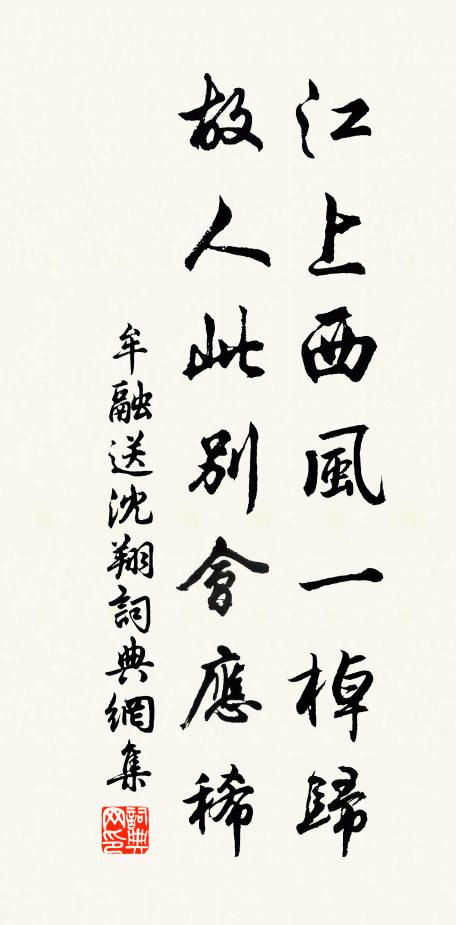 江上西風一棹歸
故人此別會應稀
牟融送沈翔詞典網集
詞典網印